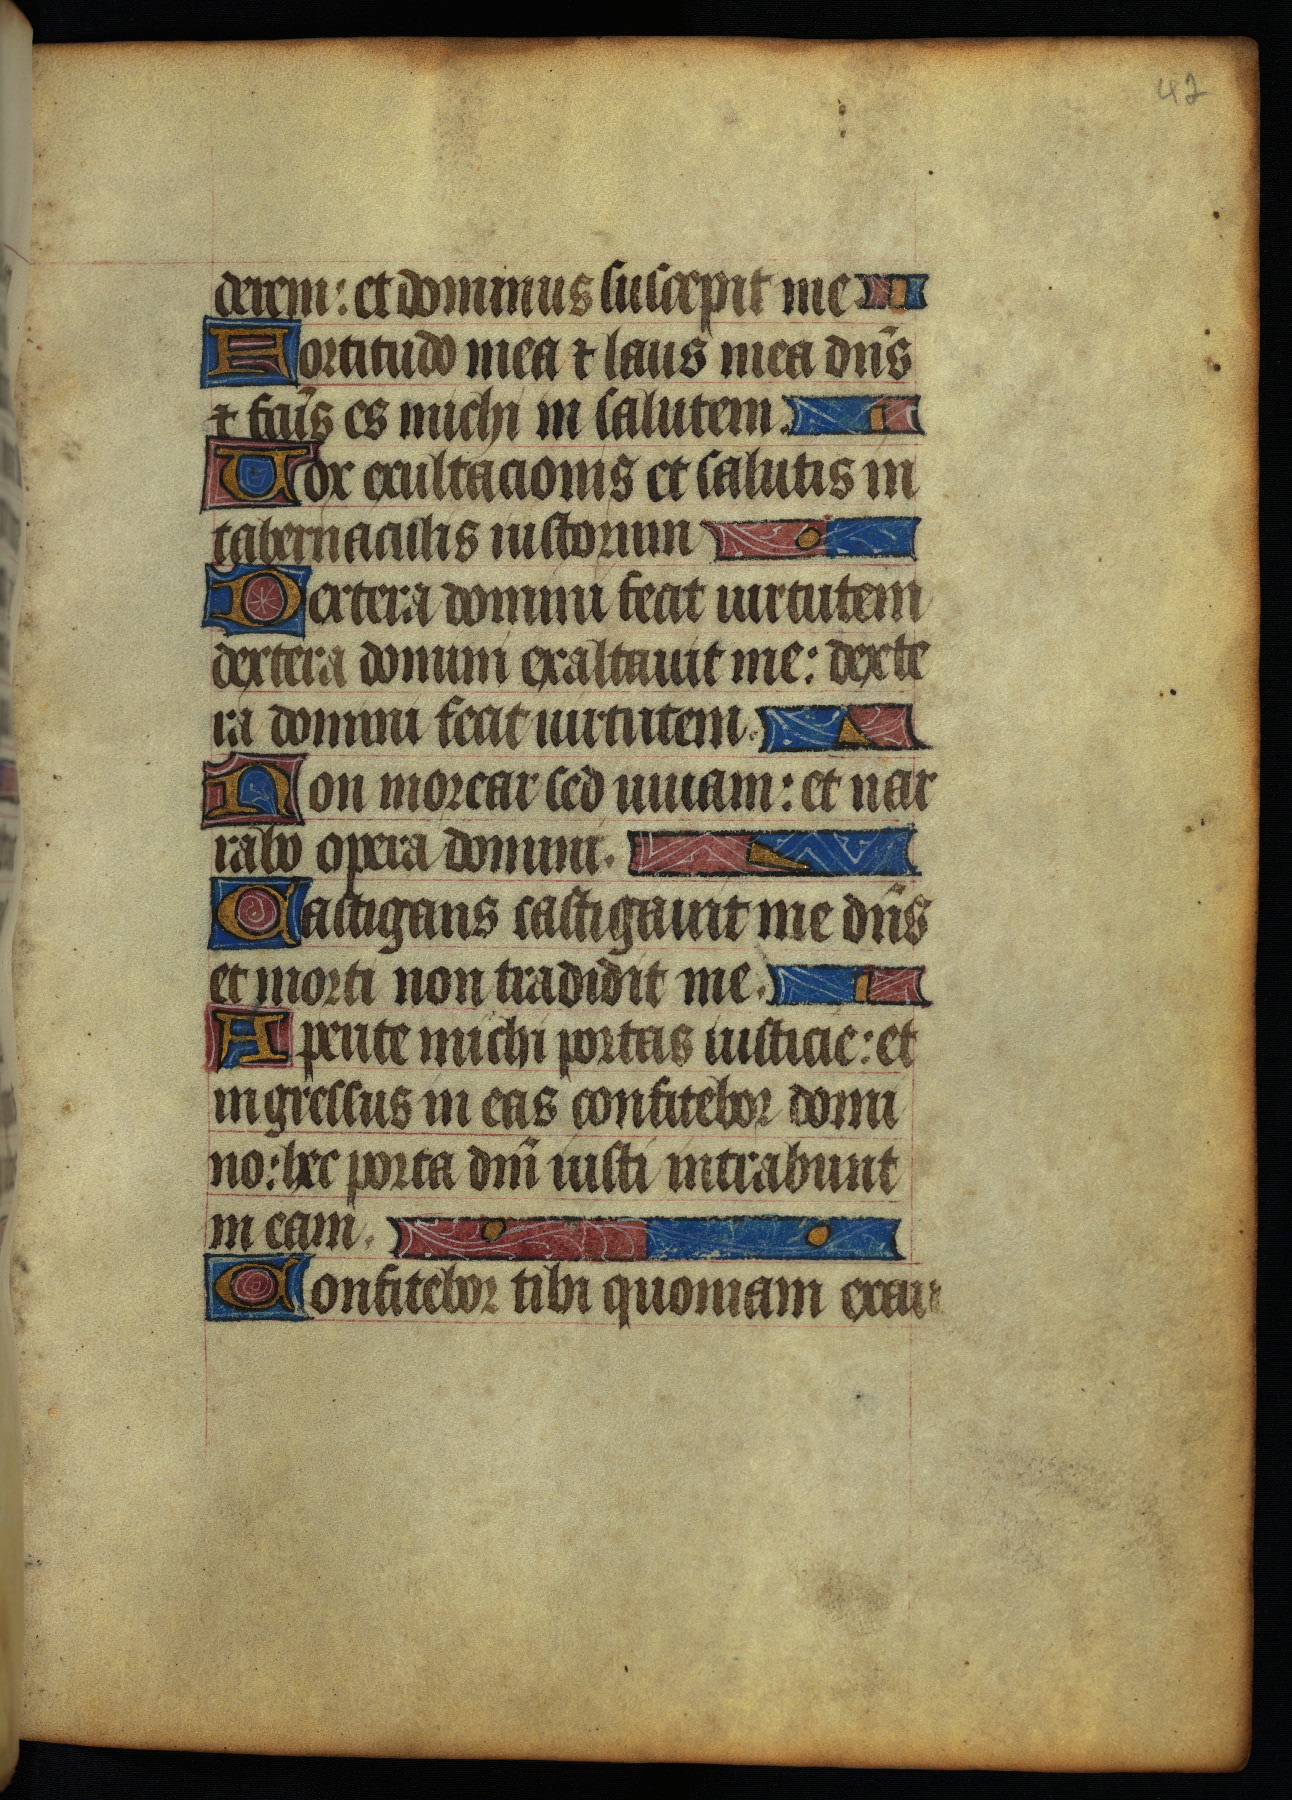 42
derem: et dominus suscepit me
Fortitudo mea ⁊ laus mea dñs
⁊ fcũs es michi in salutem.
Uox exultacionis et salutis in
tabernaculis iustorum
Dextera domini fecit uirtutem
dextera domini exaltauit me: dexte
ra domini fecit uirtutem.
Non moreear sed uiuam: et nar
rabo opera domini.
Castigans castigauit me dñs
et morti non tradidit me.
Aperite michi portas iusticie: et
ingressus in eas confitebor domi
no: hec porta dñi iusti intrabunt
in eam.
Confitebor tibi quoniam exau